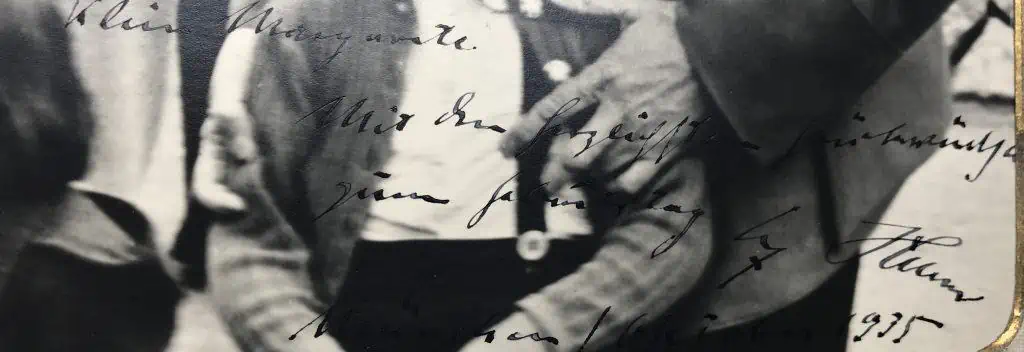 Klein Margarete.
Mit den herzlichsten Glückwünsche
zum Geburtstag
München / 1935